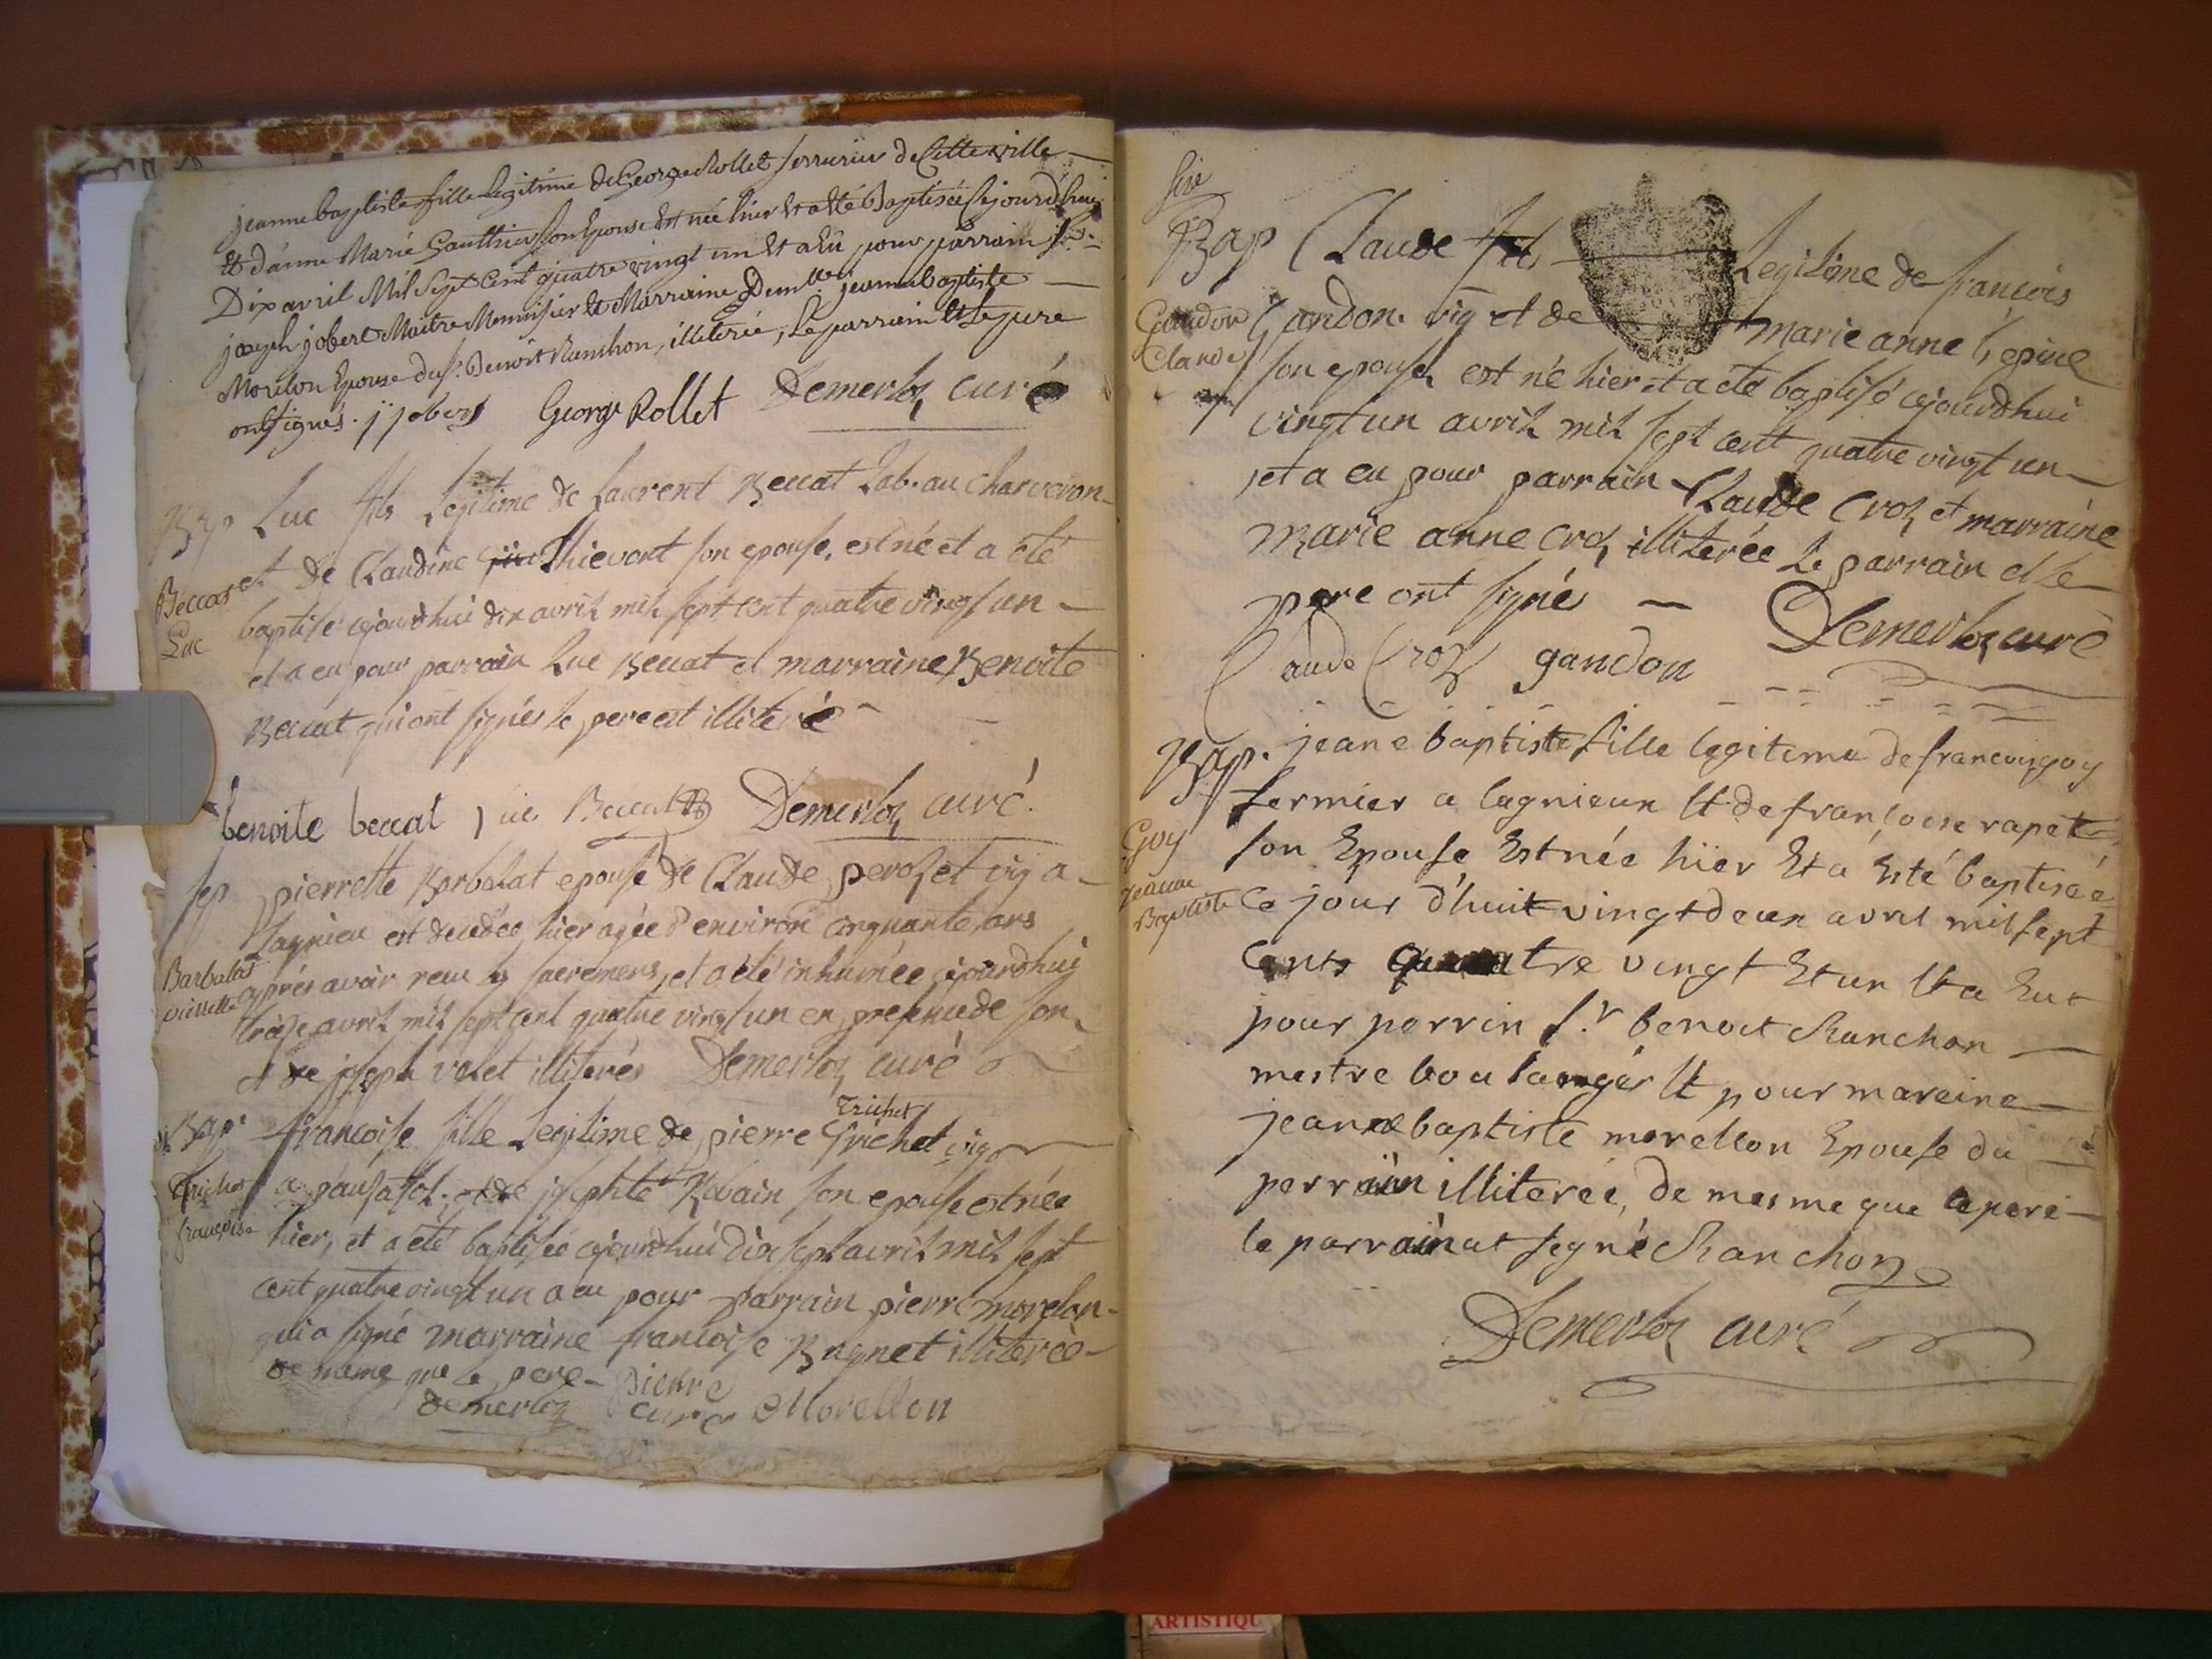 jeanne baptiste fille legitime de George Rollet serrurier de Cette ville
Et d'anne Marie Gauthier son Epouse Est née hier Et a Eté Baptisée Cejourd'huy
Dix avril Mil Sept Cent quatre vingt un Et a Eû pour parrain Sr.
joseph jobert Maitre Menuisier Et Marraine Demlle jeanne baptiste
Morilon Epouse du Sr. Benoit Ranchon, illiterée, Le parrain Et Le pere
ont signés. j jobert George Rollet Demerloz curé
Bap Luc fils Legitime de Laurent Beccat Lab. au Charveron
et de Claudine Thievont son epouse, est né et a été
Beccat
Luc
baptisé cejourdhui dix avril mil sept cent quatre vingt un
et a eu pour parrain Luc Beccat et marraine Benoite
Beccat qui ont signés le pere est illiteré
benoite beccat Luc Beccat Demerloz curé.
sep pierrette Barbalat epouse de Claude perozet vig a
Lagnieu est decedée hier agée d'environ cinquante ans
Barbalat
pierrette
après avoir recu les sacremens, et a été inhumée cejourdhuy
treize avril mil sept cent quatre vingt un en presence de son
et de joseph valet illiterés Demerloz curé
Trichet
Bap. francoise fille Legitime de pierre Trichet vig
Trichet
francoise
a pausafol. et de josephte Ravain son epouse est née
hier, et a été baptisée cejourdhui dix sept avril mil sept
cent quatre vingt un a eu pour parrain pierre morelon
qui a signé marraine francoise Bugnet illiterée
de meme que le pere pierre
demerloz curé Morellon
Bap Claude fils Legitime de francois
Gandon
Claude
Gandon vig et de marie anne Lepine
son epouse est né hier et a été baptisé cejourdhui
vingt un avril mil sept cent quatre vingt un
et a eu pour parrain Claude Croz et marraine
marie anne Croz illiterée Le parrain et le
pere ont signés Demerloz curé
Claude Croz gandon
Bap. jeane baptiste fille legitime de francoy goy
fermier a lagnieux Et de francoise rapet
Goy
jeanne
Baptiste
son Epouse Est née hier Et a Esté baptiseé
Ce jour d'huit vingt deux avril mil sept
Cents quatre vingt Et un Et a Eut
pour perrin S.r benoit Ranchon
mestre boulanger Et pour mareine
jeane baptiste morellon Epouse du
perrain illiterée, de mesme que le pere
le parrain at segné Ranchon
Demerloz curé
ARTISTIQU